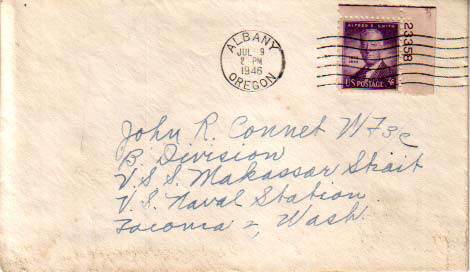 ALBANY
JUL 9
2 PM
1946
OREGON
ALFRED E. SMITH
U.S. POSTAGE 3¢
23358
John R. Connet WT3c
B. Division
U.S.S. Makassar Strait
U.S. Naval Station
Tacoma 2, Wash.